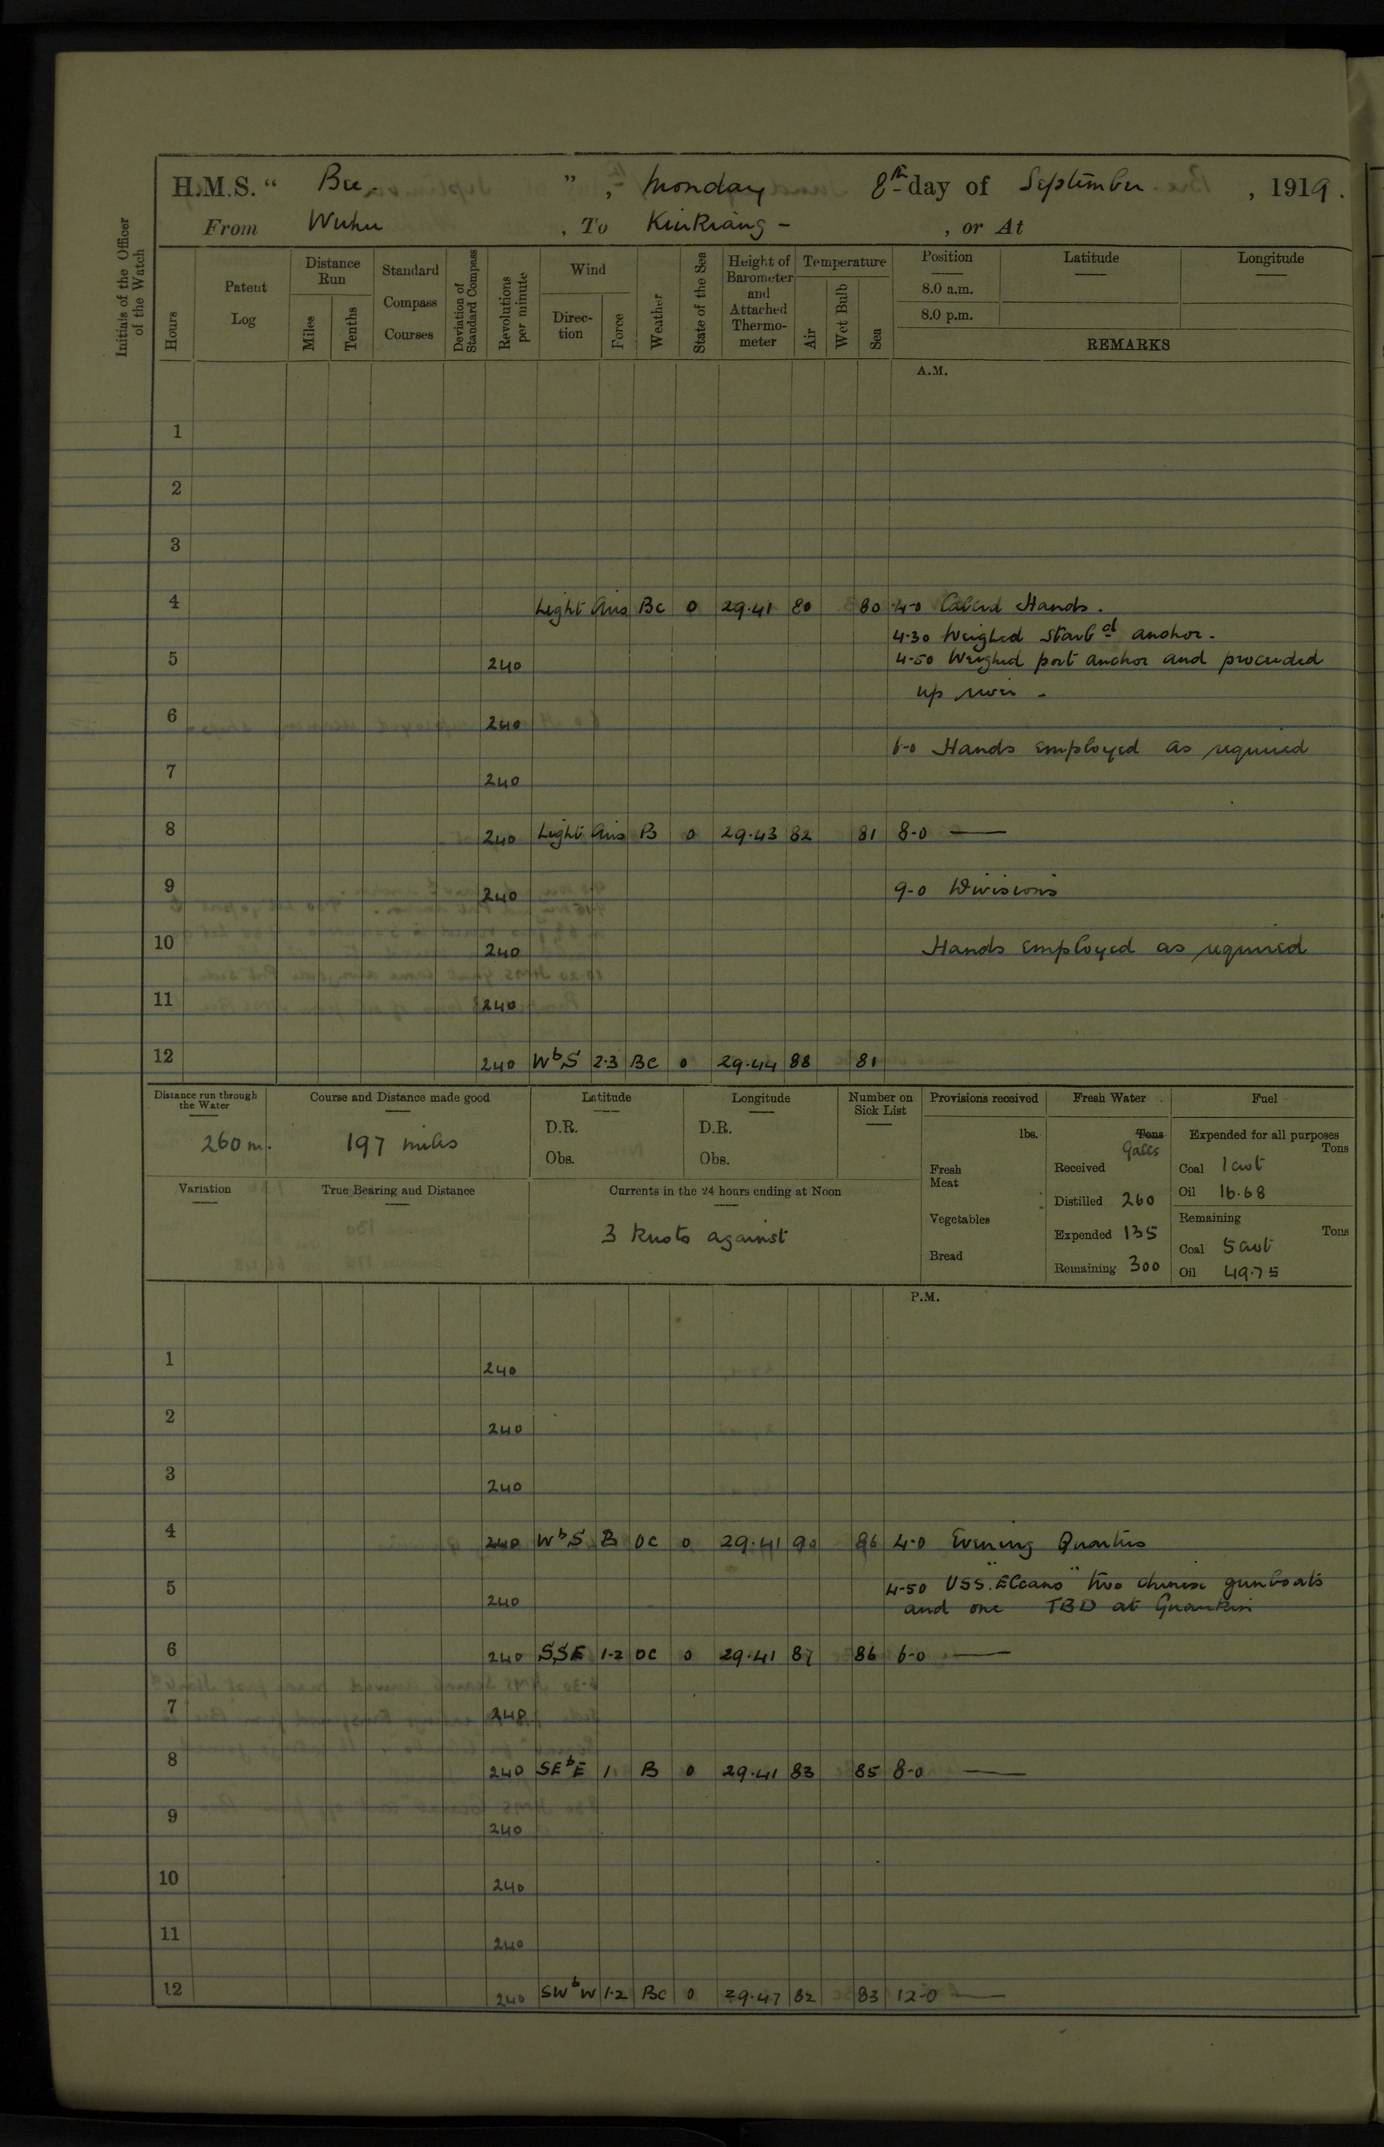 H.M.S. “ Bee. ” , Monday 8th day of September , 1919.
From Wuhu , To Kiukiang - , or At
Initials of the Officer of the Watch
Hours
Patent Log
Distance Run
Miles
Tenths
Standard Compass Courses
Deviation of Standard Compass
Revolutions per minute
Wind
Direc-tion
Force
Weather
State of the Sea
Height of Barometer and Attached Thermo-meter
Temperature
Air
Wet Bulb
Sea
Position
8.0 a.m.
8.0 p.m.
Latitude
Longitude
REMARKS
A.M.
1
2
3
4 Light Airs BC 0 29.41 80 80 4-0 Called Hands.
4-30 Weighed Starbd anchor.
5 240 4-50 Weighed port anchor and proceeded
up river -
6 240
6-0 Hands employed as required
7 240
8 240 Light Airs B 0 29.43 82 81 8-0 —
9 240 9-0 Divisions
10 240 Hands employed as required
11 240
12 240 WbS 2.3 BC 0 29.44 88 81
Distance run through the Water
260 m.
Course and Distance made good
197 miles
Latitude
D.R.
Obs.
Longitude
D.R.
Obs.
Number on Sick List
Provisions received
lbs.
Fresh Meat
Vegetables
Bread
Fresh Water
Tons Galls
Received
Distilled 260
Expended 135
Remaining 300
Fuel
Expended for all purposes
Tons
Coal 1 cwt
Oil 16.68
Remaining
Tons
Coal 5 cwt
Oil 49.75
Variation
True Bearing and Distance
Currents in the 24 hours ending at Noon
3 knots against
P.M.
1 240
2 240
3 240
4 240 WbS OC 0 29.41 90 86 4-0 Evening Quarters
5 240 4-50 USS. "Elcano" two chinese gunboats
and one TBD at
6 240 SSE 1-2 OC 0 29.41 87 86 6-0 —
7 240
8 240 SEbE 1 B 0 29.41 83 85 8-0 —
9 240
10 240
11 240
12 240 SWbW 1-2 BC 0 29.47 82 83 12-0 —